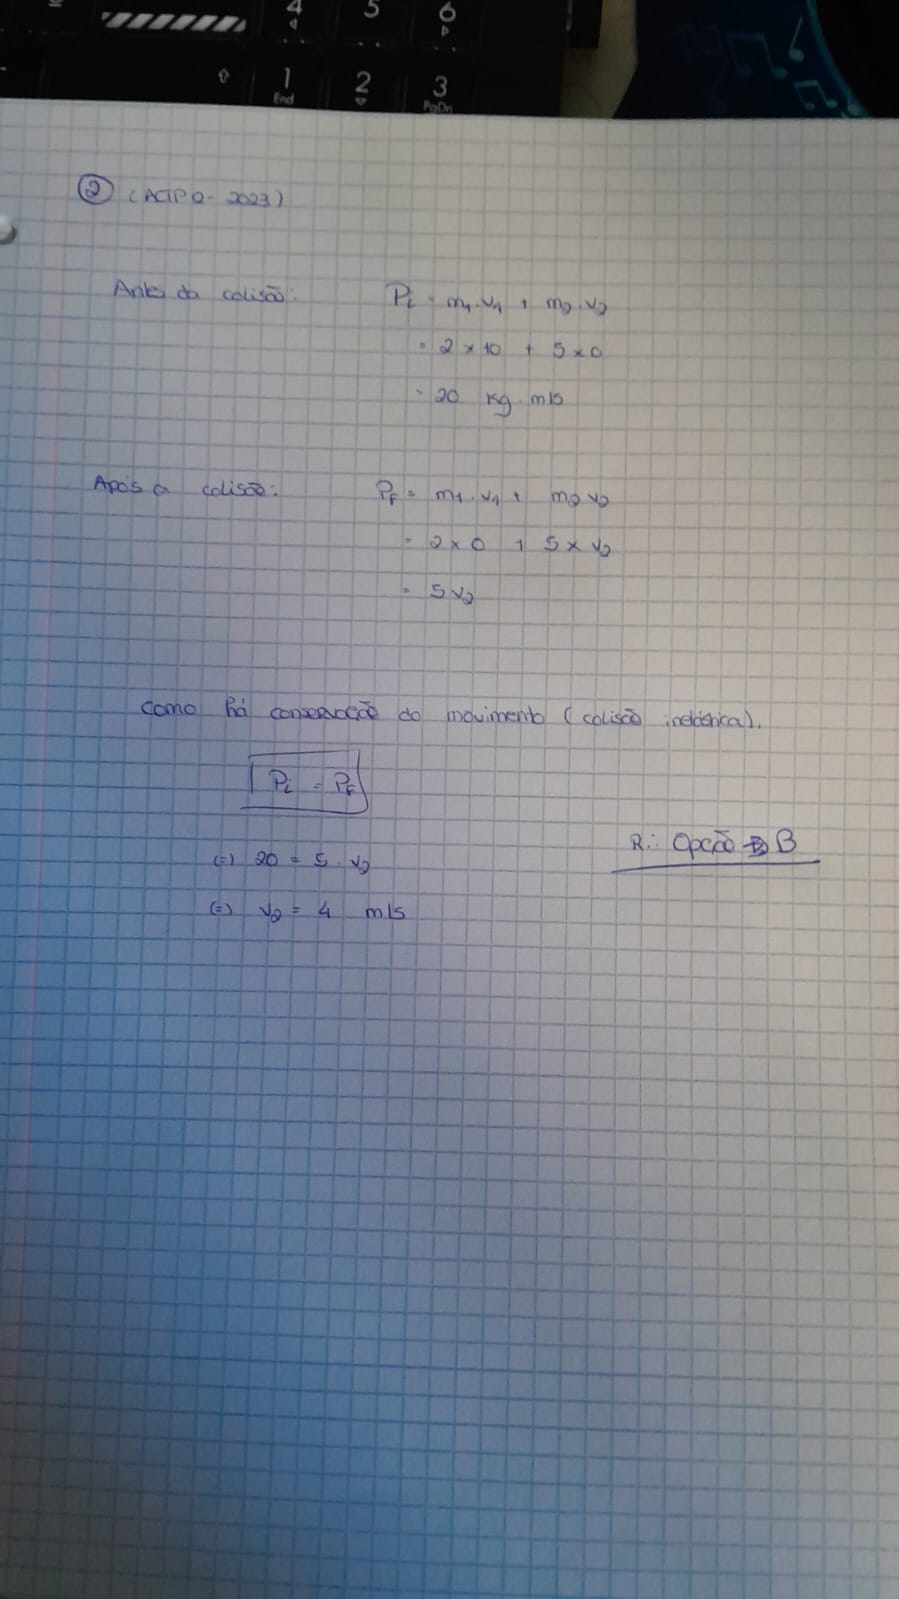 4 5 6
1 2 3
End PgDn
② (ACIPQ- 2023)
Antes da colisão: Pi = m1.v1 + m2.v2
= 2 x 10 + 5 x 0
= 20 kg m/s
Após a colisão: Pf = m1.v1 + m2 v2
= 2 x 0 + 5 x v2
= 5 v2
Como há conservação do movimento (colisão inelástica).
Pi = Pf
(=) 20 = 5 . v2
R.: Opção B
(=) v2 = 4 m/s